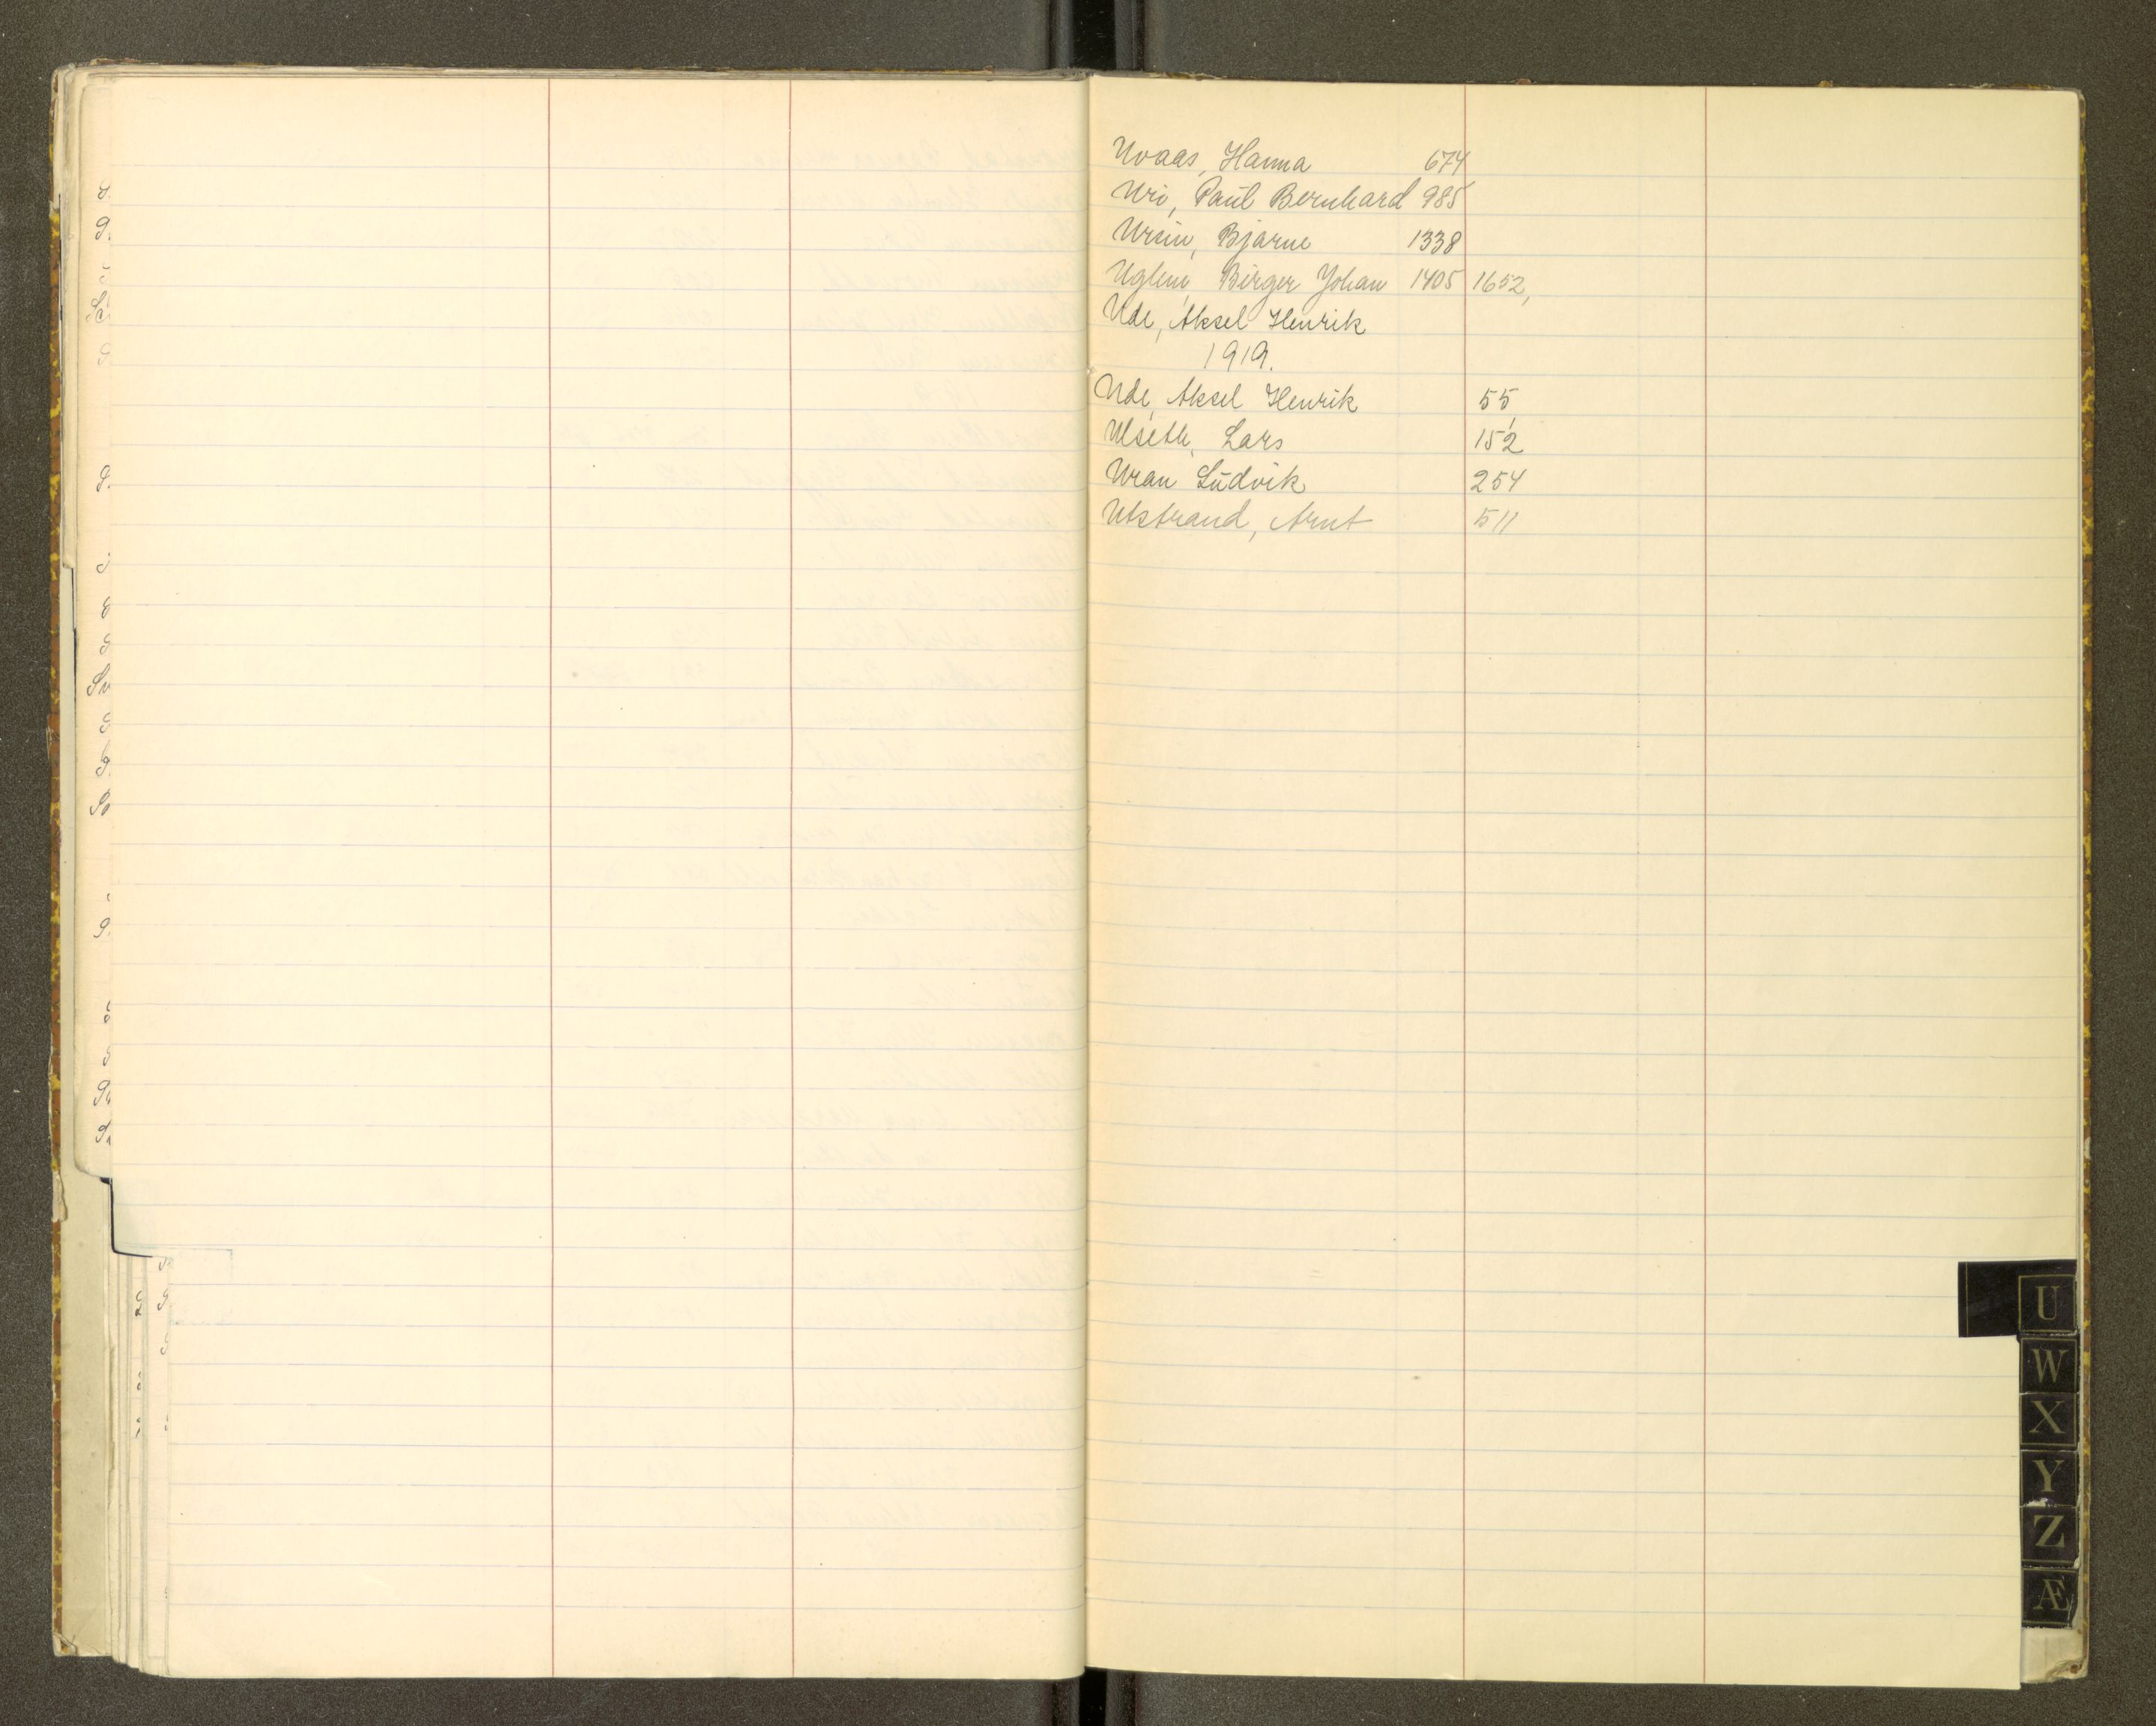 Uvaas, Hanna 674
Uri, Paul Bernhard 985
Ursin, Bjarne 1338
Uglem, Birger Johan 1405 1652,
Ude, Aksel Henrik
1919.
Ude, Aksel Henrik 55,
Ulseth, Lars 152
Uran Ludvik 254
Utstrand, Arnt 511
U
W
X
Y
Z
Æ